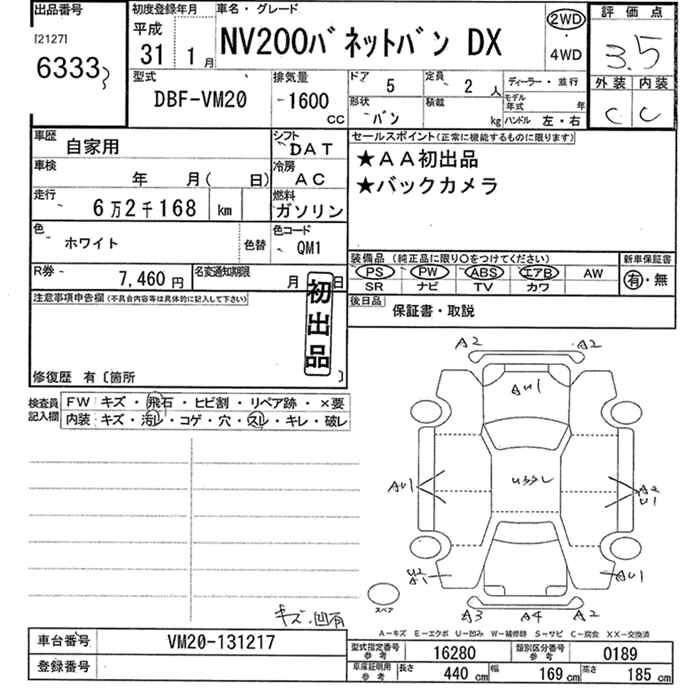 出品番号
[2127]
6333
初度登録年月
平成
31 1月
車名・グレード
NV200バネットバン DX
2WD
・
4WD
評価点
3.5
外装 内装
C C
型式
DBF-VM20
排気量
1600
CC
ドア 5
定員 2 人
形状 バン
積載 kg
ディーラー・並行
モデル年式 年
ハンドル 左・右
車歴 自家用
シフト DAT
車検 年 月( 日)
冷房 AC
走行 6万2千168 km
燃料 ガソリン
色 ホワイト 色替
色コード QM1
R券 7,460円
名変通知期限 月 日
セールスポイント(正常に機能するものに限ります)
★AA初出品
★バックカメラ
装備品 (純正品に限り○をつけてください)
PS PW ABS エアB AW
SR ナビ TV カワ
新車保証書
有・無
後日品 保証書・取説
注意事項申告欄(不具合内容等は具体的に記入して下さい)
初出品
修復歴 有〔箇所 〕
検査員記入欄
FW キズ・飛石・ヒビ割・リペア跡・×要
内装 キズ・汚レ・コゲ・穴・スレ・キレ・破レ
A2 A2
AU1
AU1
A2
U1
AU1
A3 A4 A2
スペア
キズ、凹有
A-キズ E-エクボ U-凹み W-補修跡 S-サビ C-腐食 XX-交換済
車台番号 VM20-131217
登録番号
型式指定番号参考 16280
類別区分番号参考 0189
車庫証明用参考 長さ 440cm 幅 169cm 高さ 185cm